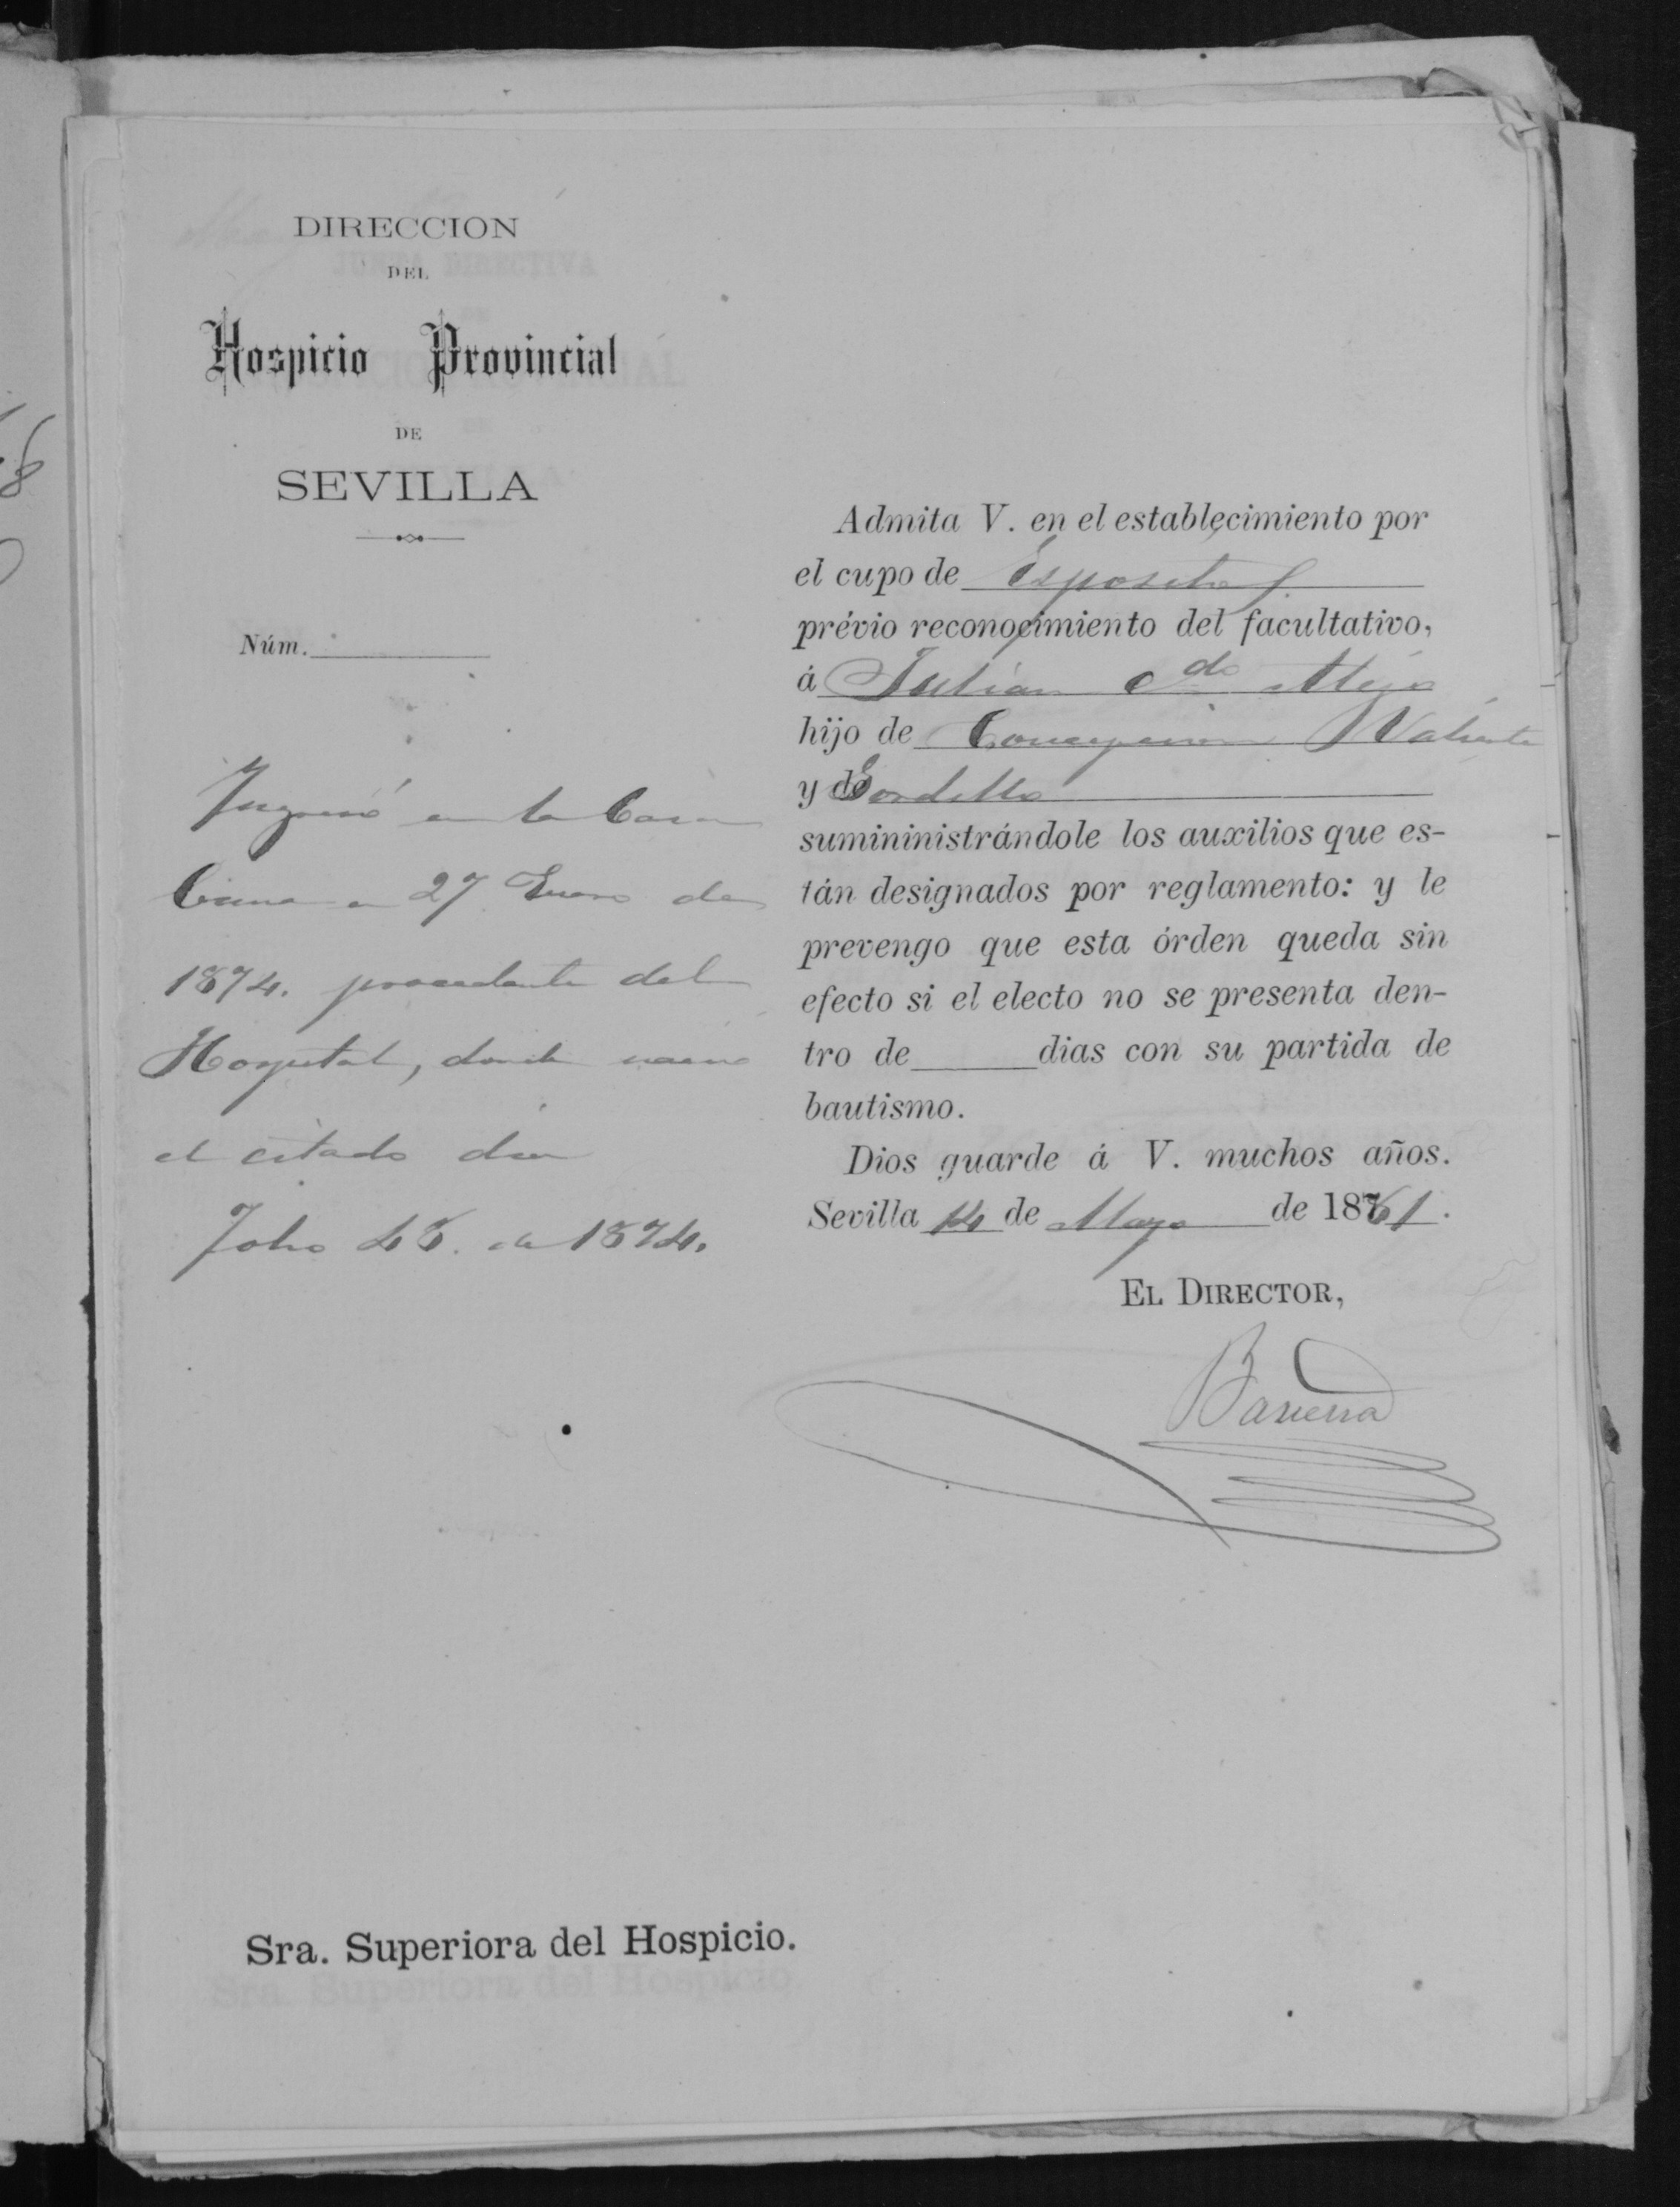 DIRECCION
DEL
Hospicio Provincial
DE
SEVILLA
Núm.
Ingresó en la Casa
Cuna en 27 Enero de
1874. procedente del
Hospital, donde nació
el citado dia
Folio 48. de 1874.
Admita V. en el establecimiento por
el cupo de Espositos
prévio reconocimiento del facultativo,
á Julian de
hijo de Concepcion Valiente
y de Gordillo
sumininistrándole los auxilios que es-
tán designados por reglamento: y le
prevengo que esta órden queda sin
efecto si el electo no se presenta den-
tro de dias con su partida de
bautismo.
Dios guarde á V. muchos años.
Sevilla 14 de Mayo de 1881.
EL DIRECTOR,
Barrera
Sra. Superiora del Hospicio.